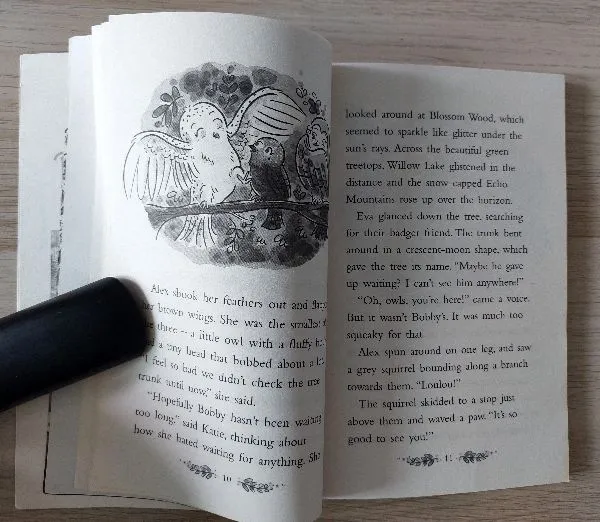 Alex shook her feathers out and
her brown wings. She was the smallest
three – a little owl with a fluffy
a tiny head that bobbed about a
"I feel so bad we didn't check the tree
trunk until now," she said.
"Hopefully Bobby hasn't been waiting
too long," said Katie, thinking about
how she hated waiting for anything. She
10
looked around at Blossom Wood, which
seemed to sparkle like glitter under the
sun's rays. Across the beautiful green
treetops, Willow Lake glistened in the
distance and the snow-capped Echo
Mountains rose up over the horizon.
Eva glanced down the tree, searching
for their badger friend. The trunk bent
around in a crescent-moon shape, which
gave the tree its name. "Maybe he gave
up waiting? I can't see him anywhere!"
"Oh, owls, you're here!" came a voice.
But it wasn't Bobby's. It was much too
squeaky for that.
Alex spun around on one leg, and saw
a grey squirrel bounding along a branch
towards them. "Loulou!"
The squirrel skidded to a stop just
above them and waved a paw. "It's so
good to see you!"
11